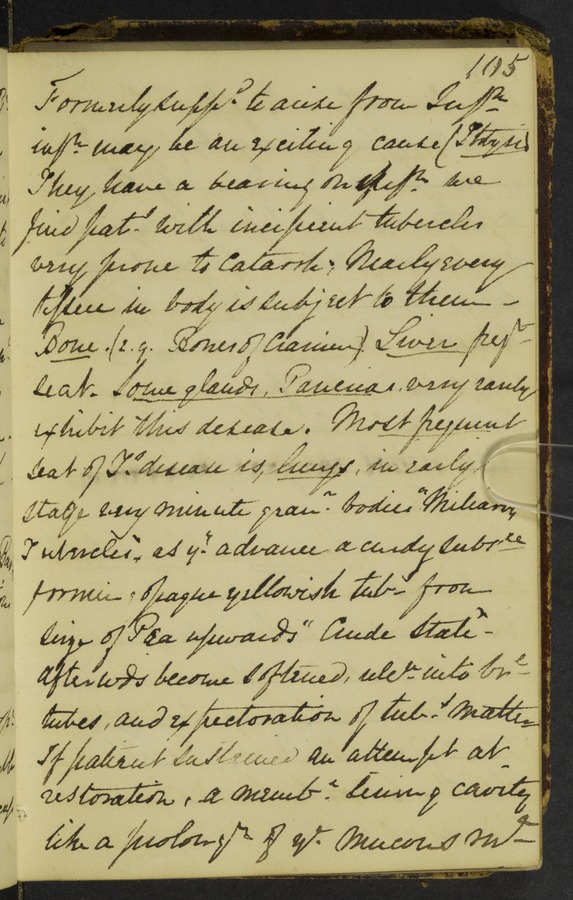 105
Formerly supp.d to arise from Inf.n
inf.n may be an exciting cause (Pthysis
They have a bearing on inf.n we
find pat.s with incipient tubercles
very prone to Catarrh; Nearly every
tissue in body is subject to them -
Bone. (e.g. Bones of Cranium) Liver freq.t
seat. Some glands, Pancreas very rarely
exhibit this desease. Most frequent
seat of T.s disease is, lungs, in early
stage very minute gran.r bodies "Miliary
Tubercles", as y.y advance a curdy subs.ce
forms; opaque yellowish tub.s from
size of Pea upwards "Crude state" -
afterw.ds become softened, ulc.n into br.l
tubes, and expectoration of tub.s matter
If patient sustained an attempt at
restoration, a memb.e lining cavity
like a prolong.n of y.e mucous